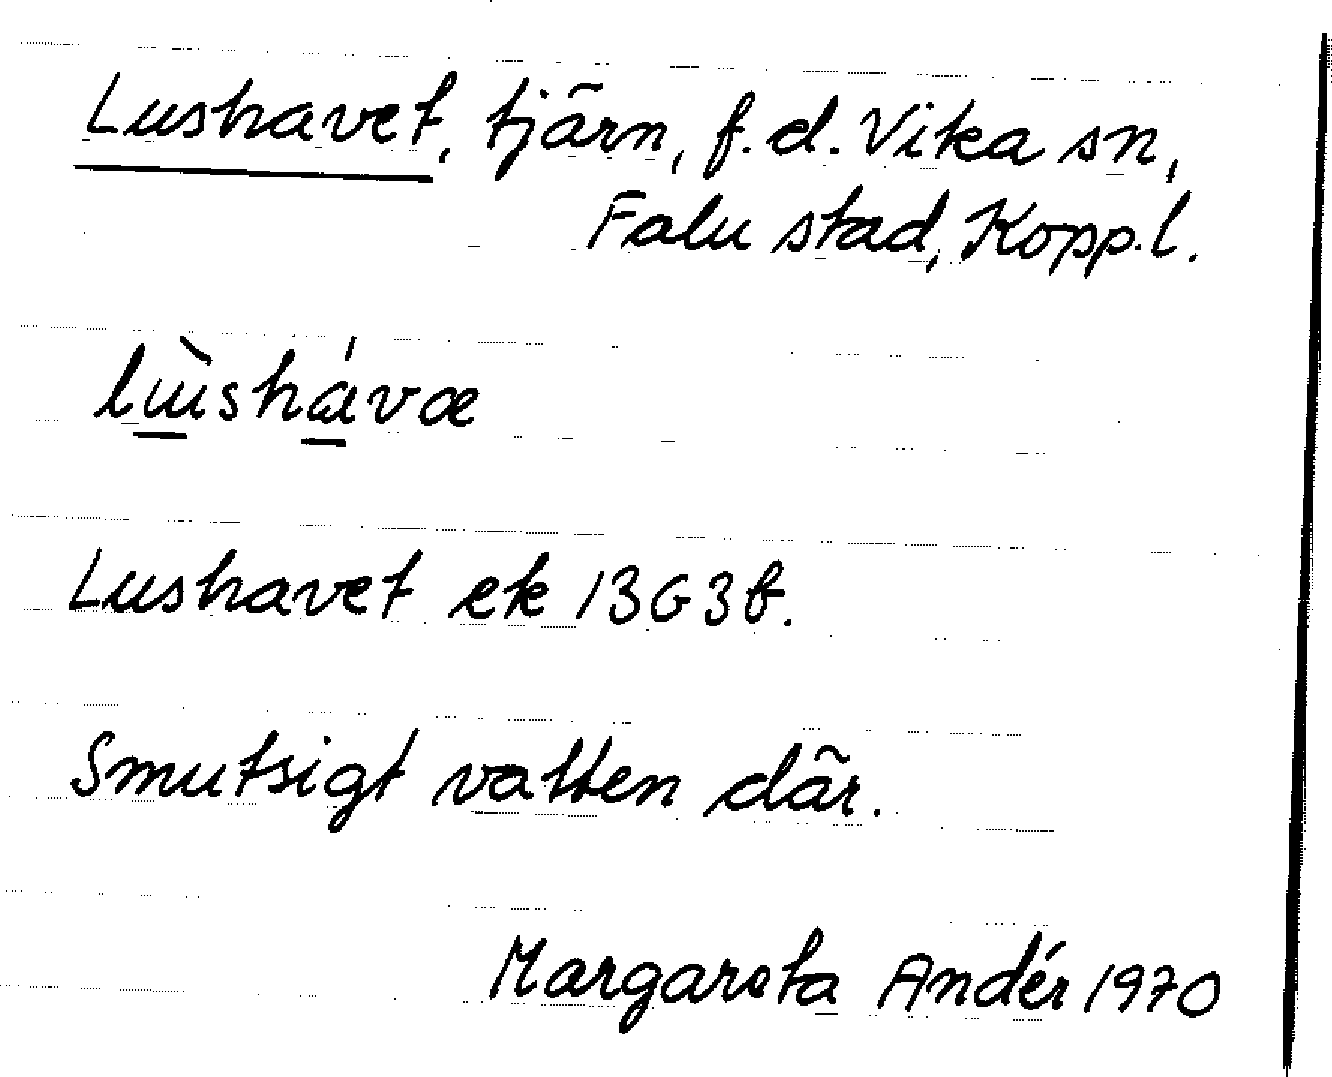 Lushavet, tjärn, f.d. Vika sn,
Falu stad, Kopp.l.
lɯ̀shávæ
Lushavet ek 13G3f.
Smutsigt vatten där.
Margareta Andér 1970